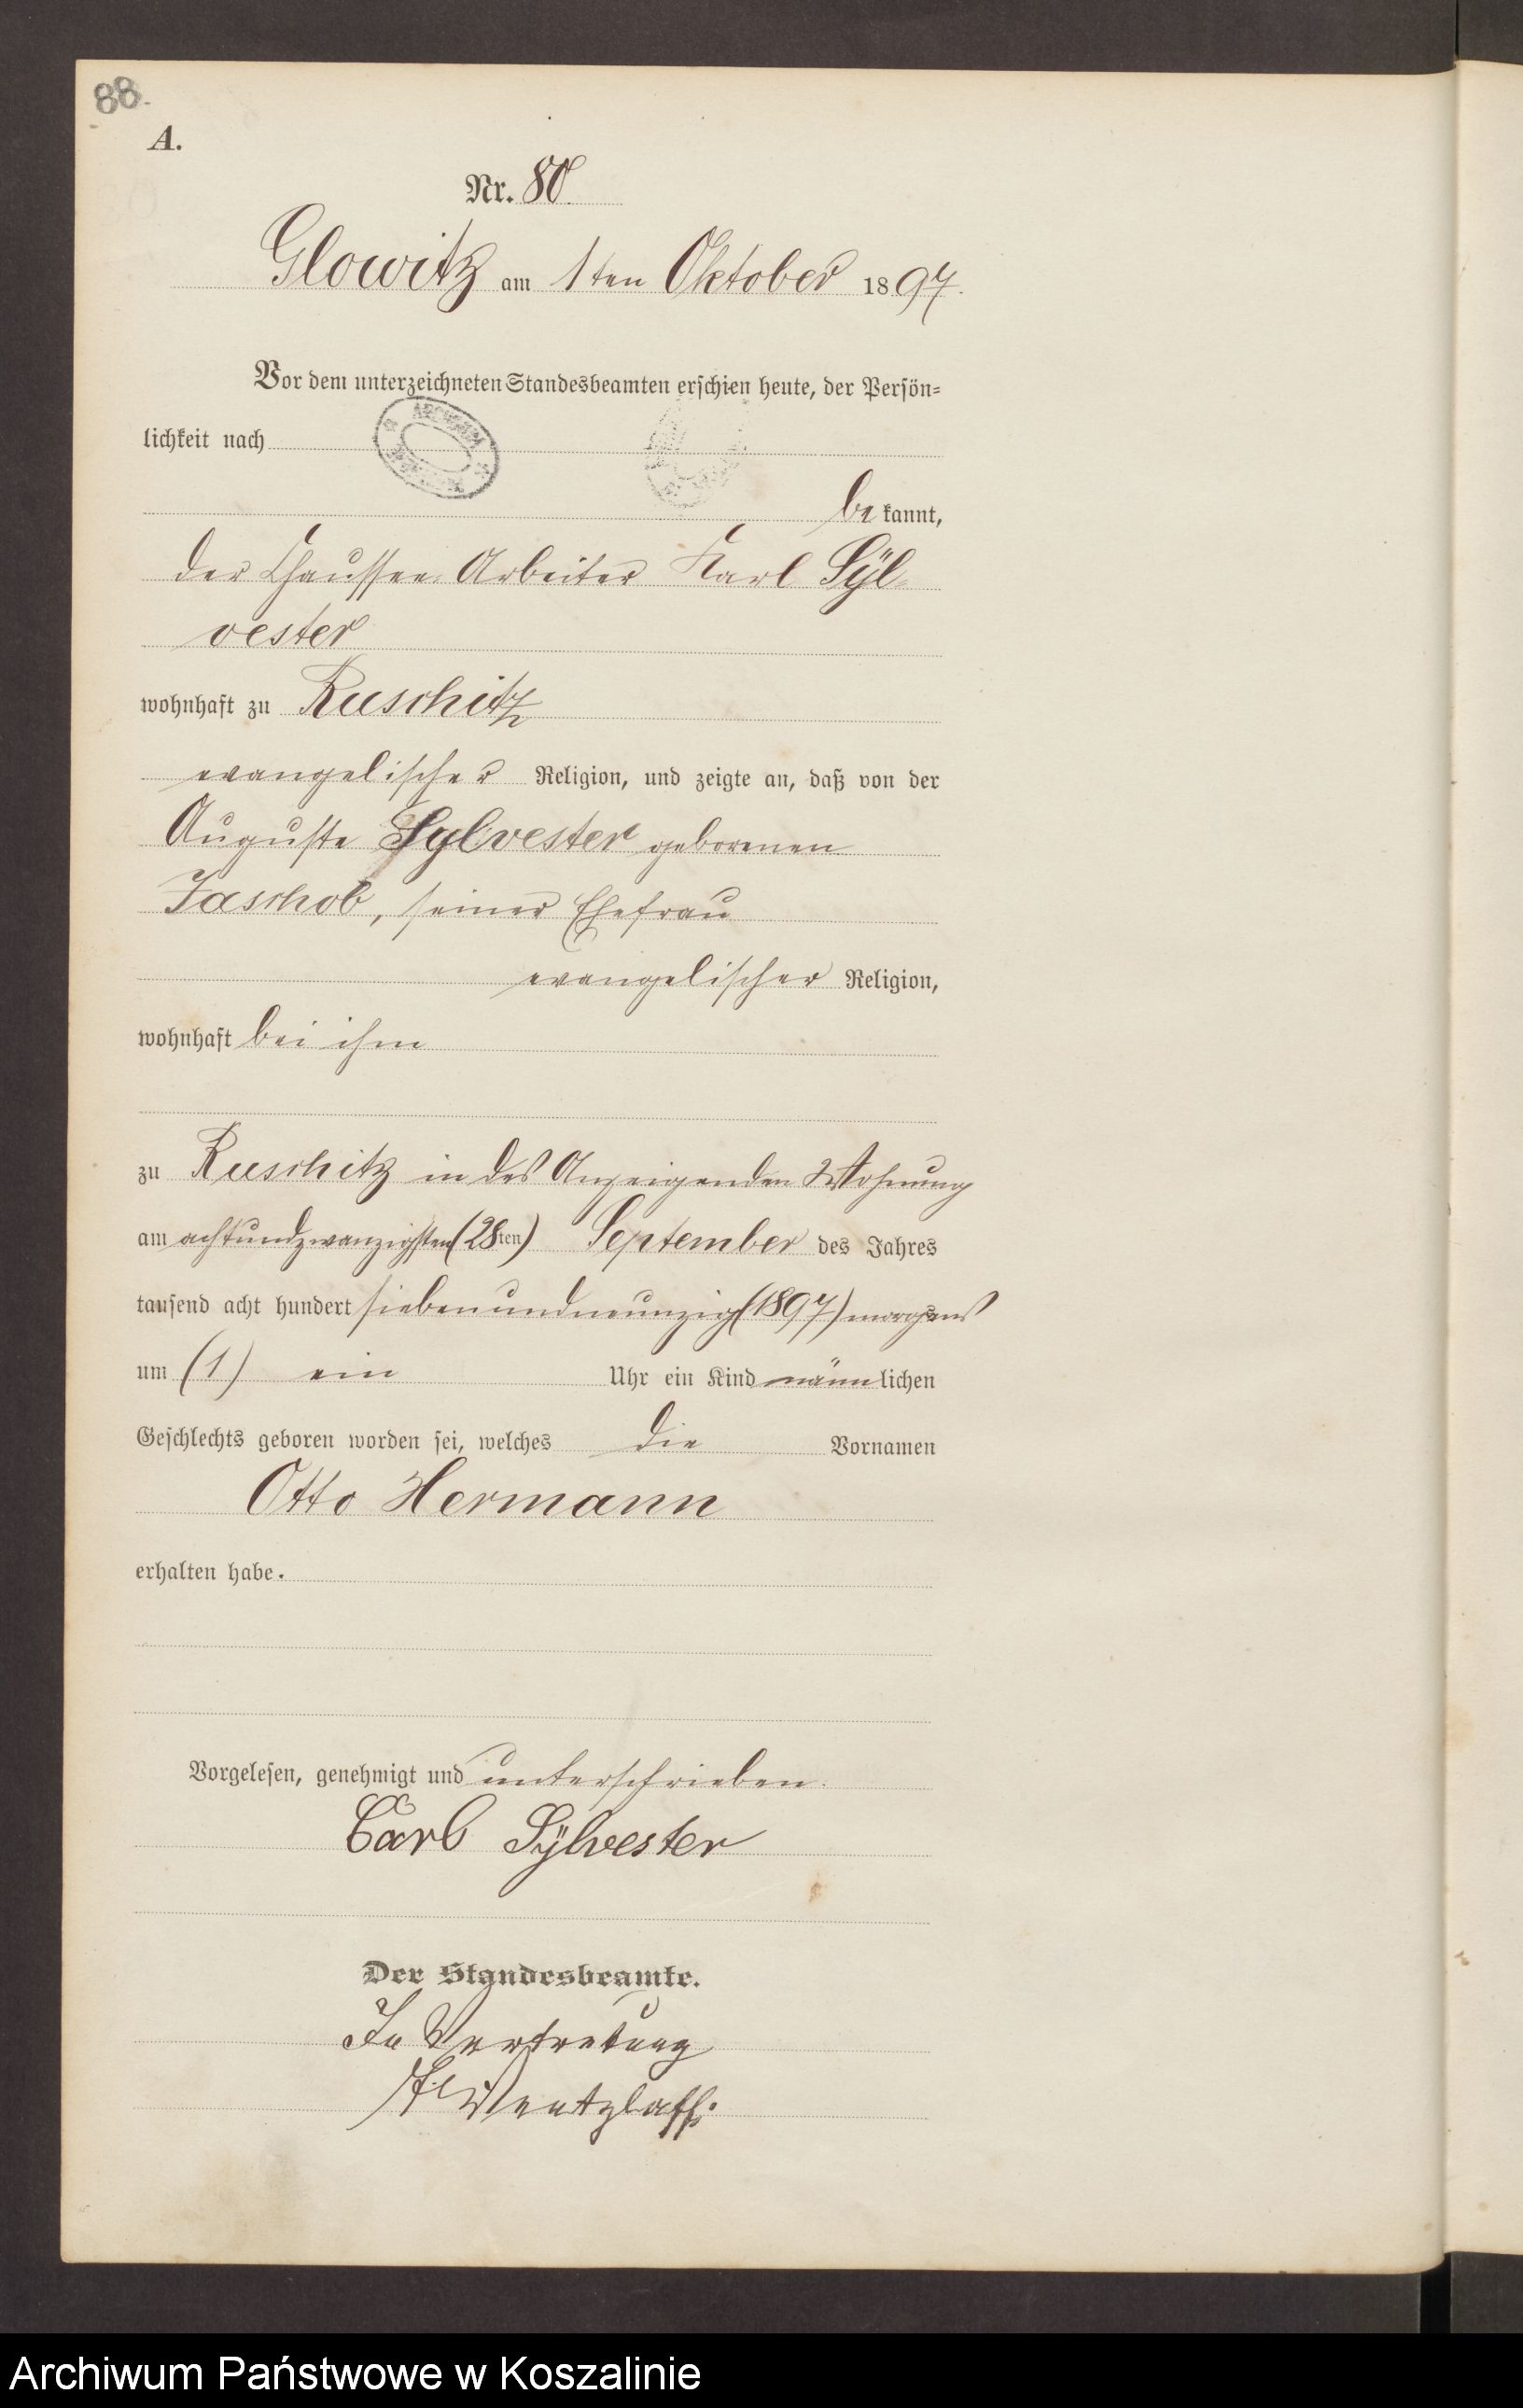 88.
A.
Nr. 80.
Glowitz am 1ten Oktober 1897.
Vor dem unterzeichneten Standesbeamten erschien heute, der Persön=
lichkeit nach
bekannt,
der Chaussee-Arbeiter Karl Sÿl-
vester
wohnhaft zu Ruschitz
evangelischer Religion, und zeigte an, daß von der
Auguste Sylvester geborenen
Jaschob, seiner Ehefrau
evangelischer Religion,
wohnhaft bei ihm
zu Ruschitz in des Anzeigenden Wohnung
am achtundzwanzigsten (28ten) September des Jahres
tausend acht hundert siebenundneunzig (1897) morgens
um (1) ein Uhr ein Kind männlichen
Geschlechts geboren worden sei, welches die Vornamen
Otto Hermann
erhalten habe.
Vorgelesen, genehmigt und unterschrieben.
Carl Sÿlvester
Der Standesbeamte.
In Vertretung
Wentzlaff.
Archiwum Państwowe w Koszalinie